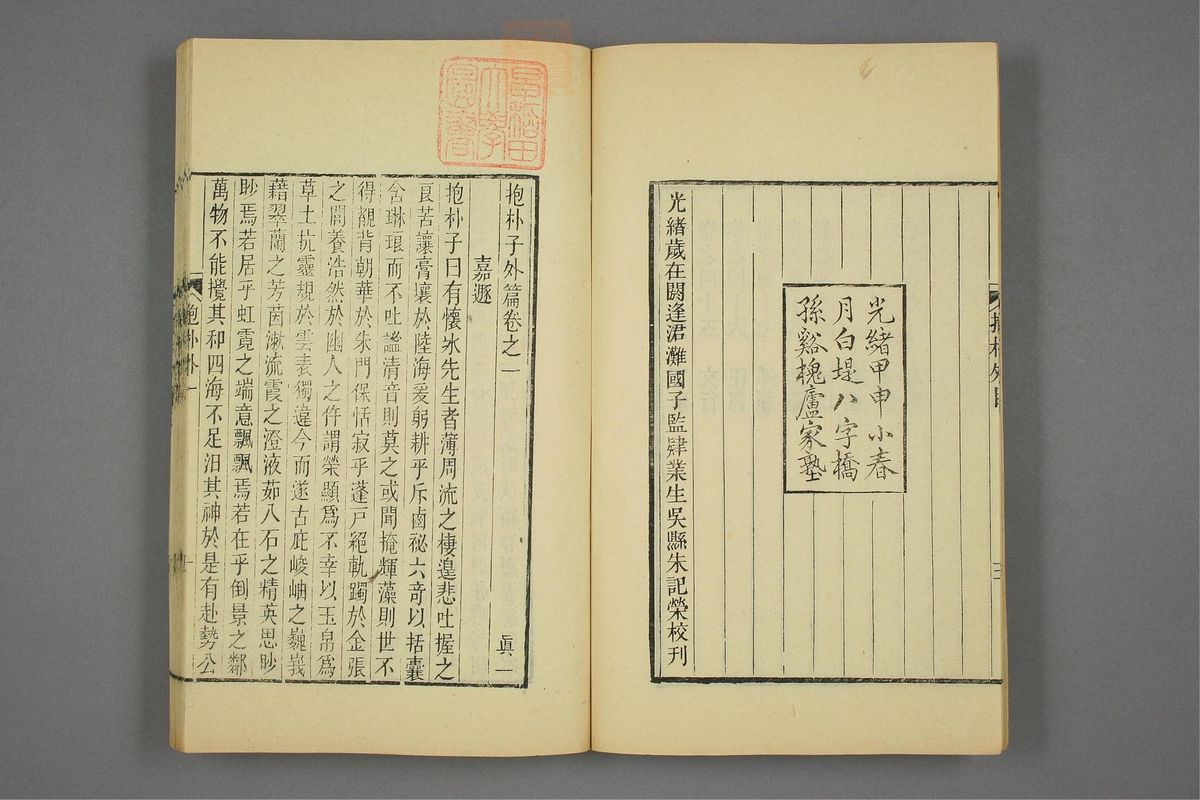 光緒甲申小春
月白堤八字橋
孫谿槐廬家塾
光緒歲在閼逢涒灘國子監肄業生吳縣朱記榮校刊
早稻田
大學
圖書
抱朴子外篇卷之一
眞一
嘉遯
抱朴子曰有懷冰先生者薄周流之棲遑悲吐握之
良苦讓膏壤於陸海爰躬耕乎斥鹵祕六奇以括囊
含琳琅而不吐謐清音則莫之或聞掩輝藻則世不
得覩背朝華於朱門保恬寂乎蓬戸絕軌躅於金張
之閭養浩然於幽人之仵謂榮顯爲不幸以玉帛爲
草土抗靈規於雲表獨違今而遂古庇峻岫之巍峩
藉翠蘭之芳茵漱流霞之澄液茹八石之精英思眇
眇焉若居乎虹霓之端意飄飄焉若在乎倒景之鄰
萬物不能攪其和四海不足汨其神於是有赴勢公
抱朴外一